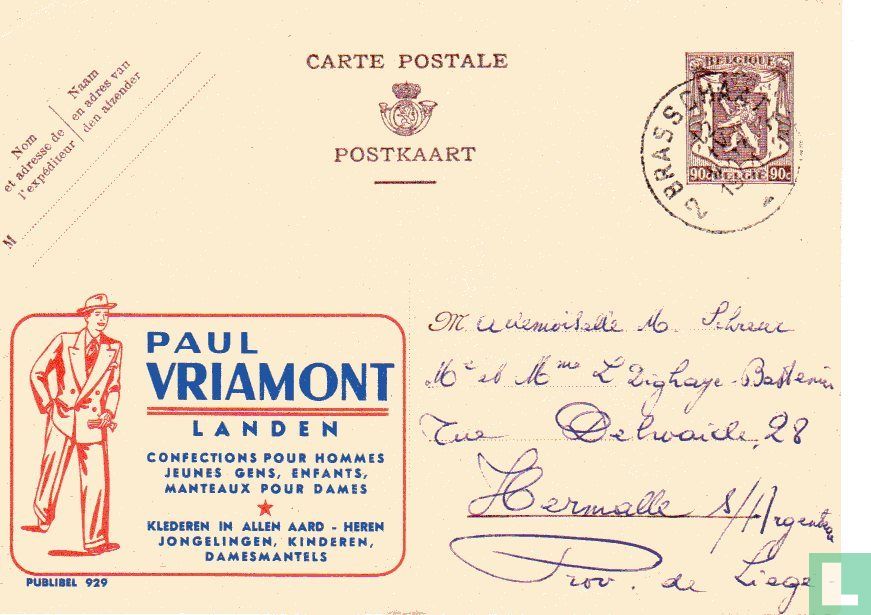 Nom
et adresse de
l'expéditeur
Naam
en adres van
den afzender
M
CARTE POSTALE
POSTKAART
BELGIQUE
90c BELGIË 90c
2 BRASSCHAAT 2
PAUL
VRIAMONT
LANDEN
CONFECTIONS POUR HOMMES
JEUNES GENS, ENFANTS,
MANTEAUX POUR DAMES
KLEDEREN IN ALLEN AARD - HEREN
JONGELINGEN, KINDEREN,
DAMESMANTELS
PUBLIBEL 929
Mademoiselle M. Schreur
Mr et Mme L Dighaye-Bastenir
Rue Delwaide, 28
Hermalle s/Argenteau
Prov. de Liege
L